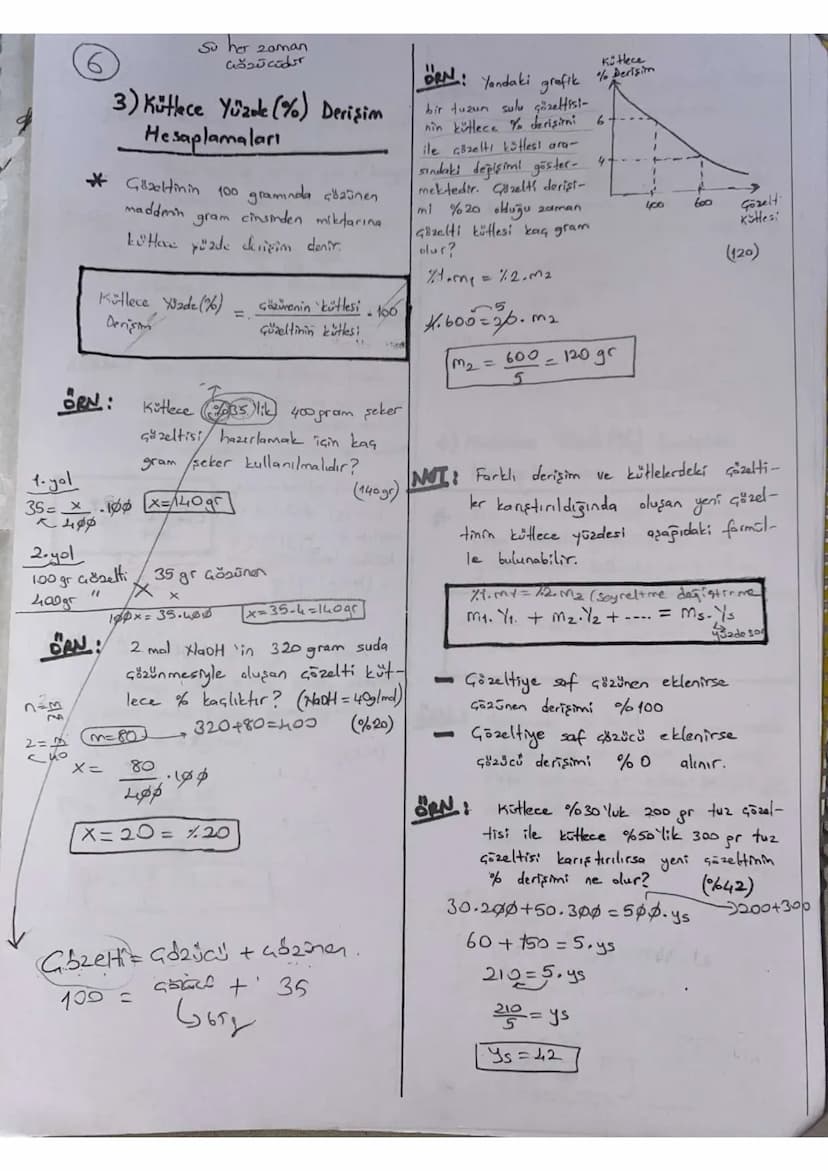 6
Su her zaman
çözücüdür
3) Kütlece Yüzde (%) Derişim
Hesaplamaları
* Çözeltinin 100 gramında çözünen
maddenin gram cinsinden miktarına
kütlece yüzde derişim denir.
Kütlece Yüzde (%) Derişim = çözünenin kütlesi / çözeltinin kütlesi . 100
ÖRN: Kütlece %35'lik 400 gram şeker
çözeltisi hazırlamak için kaç
gram şeker kullanılmalıdır?
(140 gr)
1. yol
35 = x / 400 . 100 x = 140 gr
2. yol
100 gr çözelti 35 gr çözünen
400 gr " x
100x = 35.400 x = 35.4 = 140 gr
ÖRN: 2 mol NaOH'in 320 gram suda
çözünmesiyle oluşan çözelti küt-
lece % kaçlıktır? (NaOH = 40 g/mol)
(%20)
n = m / ma
2 = m / 40 m = 80 → 320 + 80 = 400
x = 80 / 400 . 100
x = 20 = %20
Çözelti = çözücü + çözünen.
100 = çözücü + 35
65 g
ÖRN: Yandaki grafik
bir tuzun sulu çözeltisi-
nin kütlece % derişimi
ile çözelti kütlesi ara-
sındaki değişimi göster-
mektedir. Çözelti derişi-
mi %20 olduğu zaman
çözelti kütlesi kaç gram
olur?
(120)
Kütlece
% Derişim
6
4
400 600
Çözelti
Kütlesi
%1.m1 = %2.m2
5
4.600 = 20.m2
m2 = 600 / 5 = 120 gr
NOT: Farklı derişim ve kütlelerdeki çözelti-
ler karıştırıldığında oluşan yeni çözel-
tinin kütlece yüzdesi aşağıdaki formül-
le bulunabilir.
%1.m1 = %2.m2 (seyreltme değiştirme
m1.Y1. + m2.Y2 + .... = ms.Ys
yüzde son
– Çözeltiye saf çözünen eklenirse
çözünen derişimi %100
– Çözeltiye saf çözücü eklenirse
çözücü derişimi %0 alınır.
ÖRN: Kütlece %30'luk 200 gr tuz çözel-
tisi ile kütlece %50'lik 300 gr tuz
çözeltisi karıştırılırsa yeni çözeltinin
% derişimi ne olur? (%42)
30.200+50.300 = 500.ys → 200+300
60 + 150 = 5.ys
210 = 5.ys
210 / 5 = ys
ys = 42